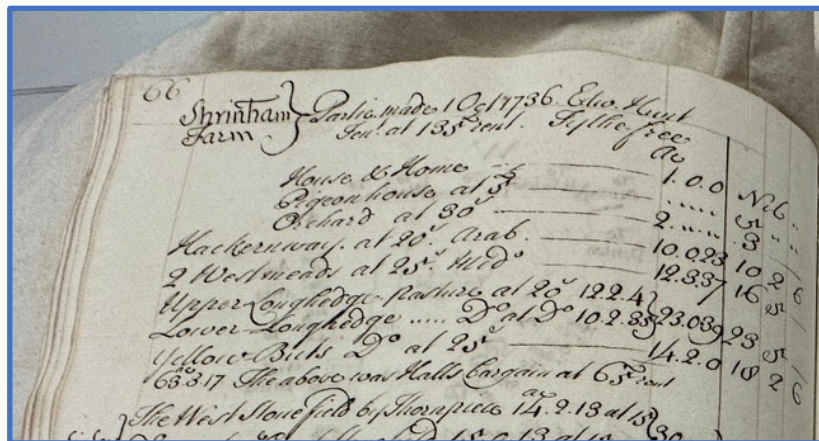 66
Shrinham Farm } Partic. made 1 Oct 1736. Edw. Hunt
Ten.t at 135£ rent. Tythe free
Ac
House & Home 1. 0. 0 Nil
Pigeon house at 5£ ..... 5 " "
Orchard at 30s 2. " " . 3 " "
Hackernway. at 20s. Arab. 10. 0. 23 10 2 6
2 Westmeads at 25s. Med.o 12. 3. 37 16 5 /
Upper Longhedge Pasture at 20s 12. 2. 4 } 23. 0. 39 23 5 /
Lower Longhedge ..... D.o at D.o 10. 2. 35
Yellow Buts D.o at 25s 14. 2. 0 18 2 6
63. 3. 17 The above was Halls bargain at 65£ rent
The West Stonefield by Thornpiece 14. 2. 13 at 15s } 30